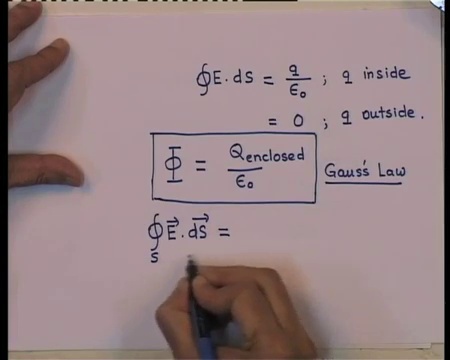 ∮E.ds = q/ε₀ ; q inside
= 0 ; q outside.
Φ = Qenclosed/ε₀ Gauss's Law
∮ₛ E⃗.dS⃗ =